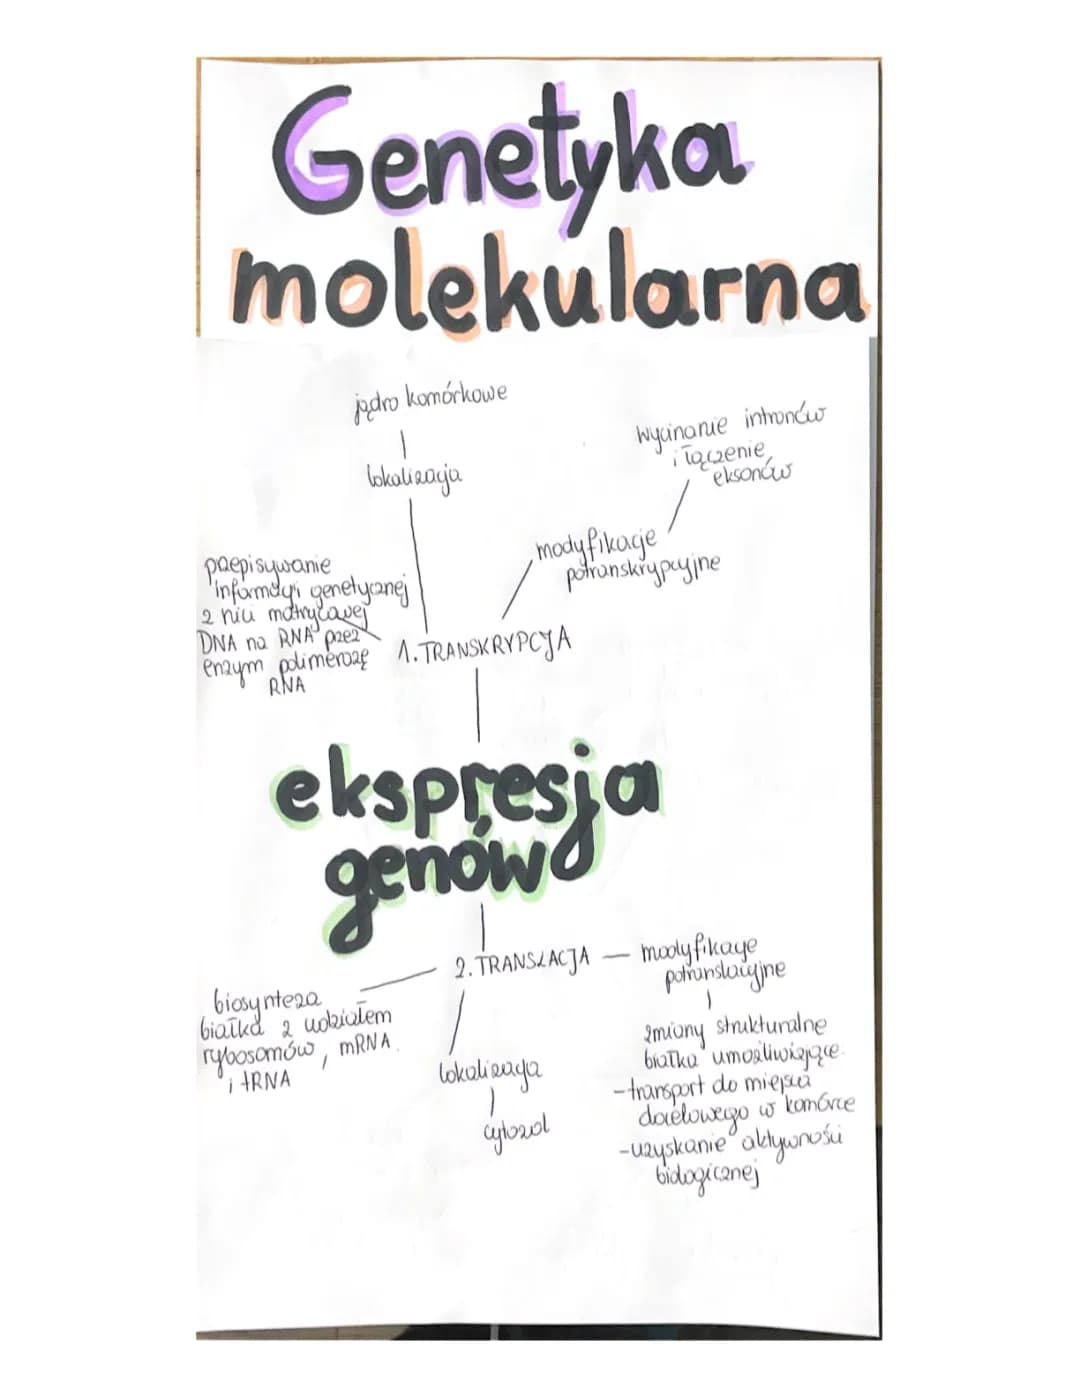 Genetyka
molekularna
jądro komórkowe
lokalizacja
wycinanie intronów
i łączenie
eksonów
modyfikacje
potranskrypcyjne
przepisywanie
informacji genetycznej
z nici matrycowej
DNA na RNA przez
enzym polimerozę
RNA
1. TRANSKRYPCJA
ekspresja
genów
2. TRANSLACJA
modyfikacje
potranslacyjne
biosynteza
białka z udziałem
rybosomów, mRNA
i tRNA
lokalizacja
cytozol
zmiany strukturalne
białka umożliwiające
-transport do miejsca
docelowego w komórce
-uzyskanie aktywności
biologicznej